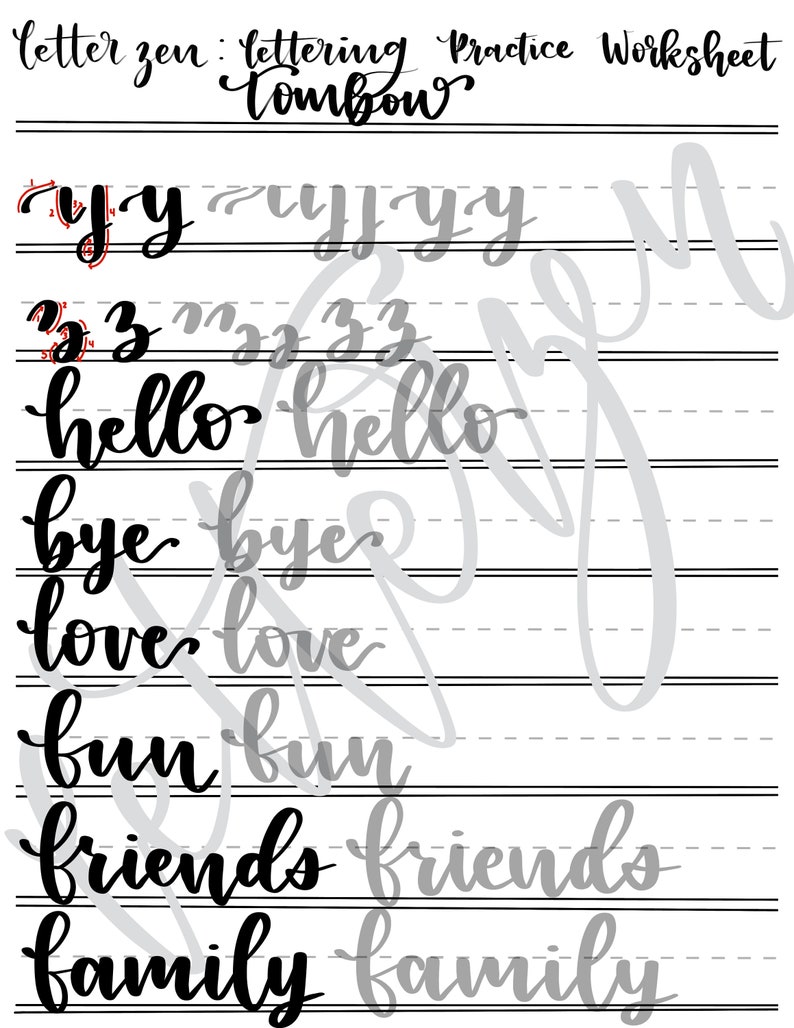 letter zen : lettering Practice Worksheet
tombow
y y y y y
z z z z
hello hello
bye bye
love love
fun fun
friends friends
family family
letterzen